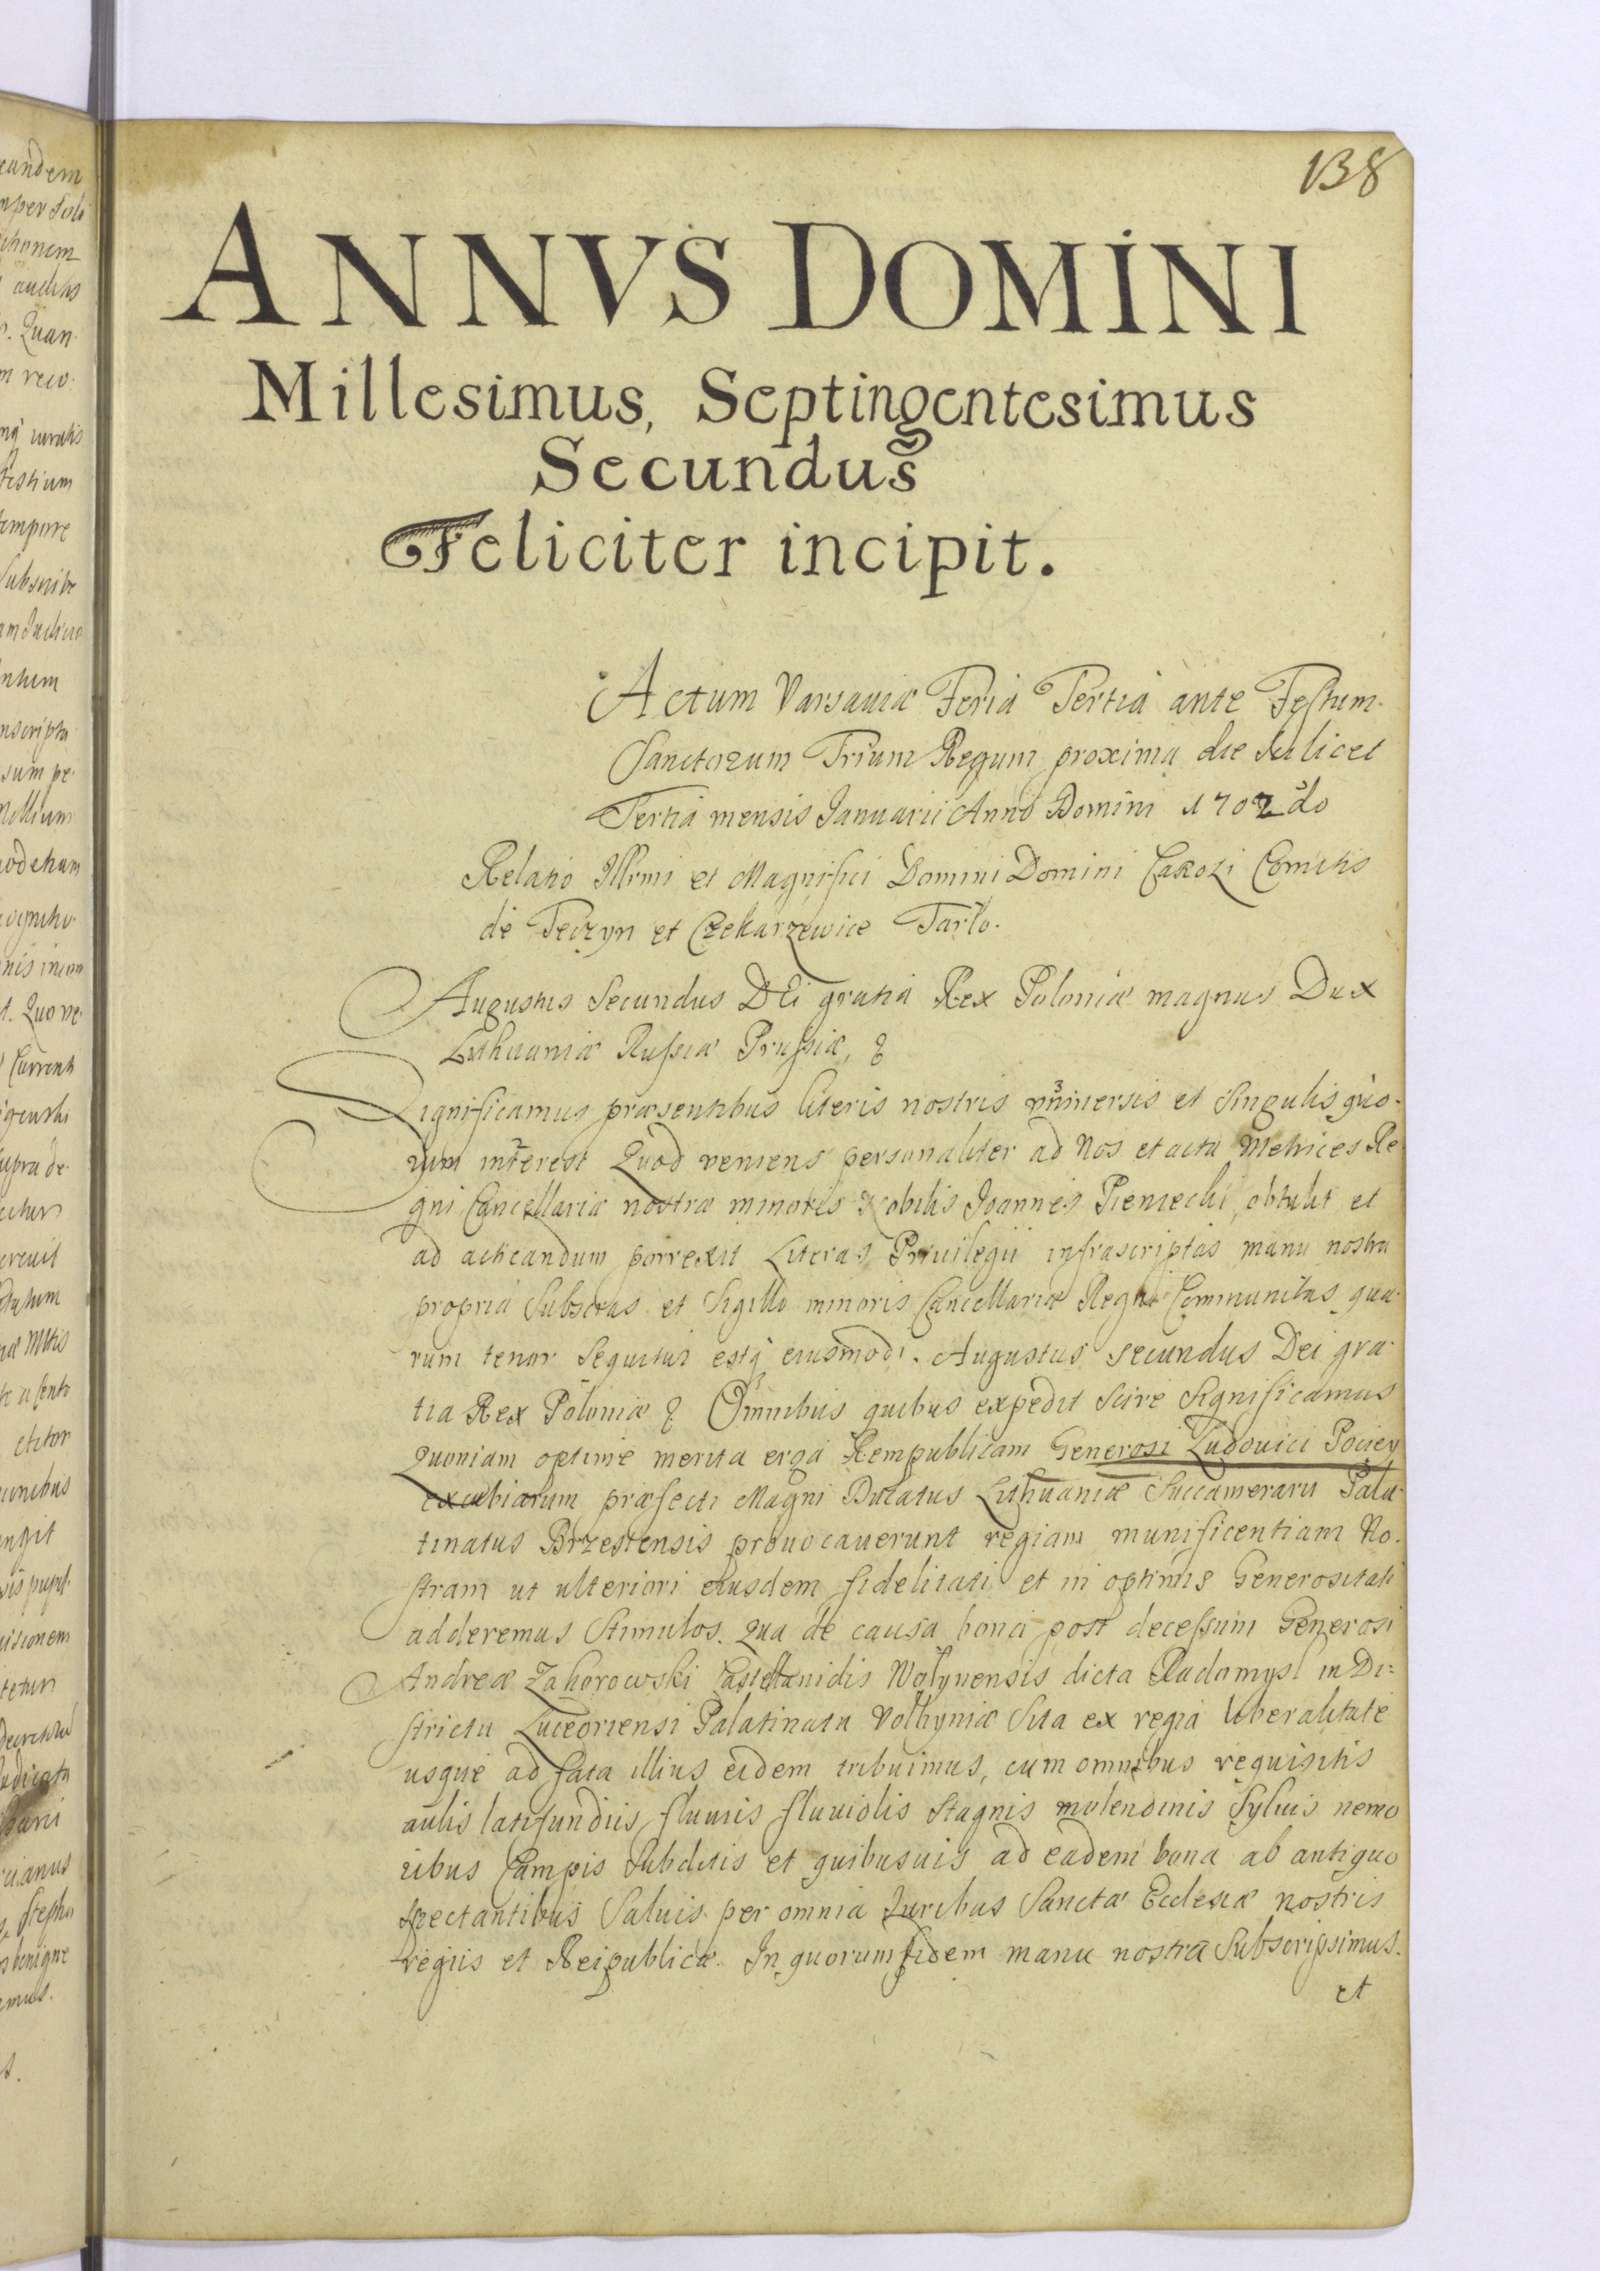 138
ANNVS DOMINI
Millesimus, Septingentesimus
Secundus
Feliciter incipit.
Actum Varsaviæ Feria Tertia ante Festum
Sanctorum Trium Regum proxima die scilicet
Tertia mensis Januarii Anno Domini 1702do
Relatio Illrmi et Magnifici Domini Domini Caroli Comitis
de Teczyn et Czekarzewice Tarło.
Augustus Secundus DEi gratia Rex Poloniæ magnus Dux
Lithuaniæ Russiæ Prussiæ, &
Significamus præsentibus literis nostris universis et singulis quo-
rum interest Quod veniens personaliter ad Nos et acta Metrices Re
gni Cancellariæ nostræ minoris Nobilis Joannes Pieniecki, obtulit et
ad acticandum porrexit Literas Privilegii infrascriptas manu nostra
propria Subscras et Sigillo minoris Cancellariæ Regni Communitas qua-
rum tenor sequitur estq eiusmodi. Augustus secundus Dei gra-
tia Rex Poloniæ & Omnibus quibus expedit scire Significamus
Quoniam optime merita erga Rempublicam Generosi Ludovici Pociey
excubiarum præfecti Magni Ducatus Lithuaniæ Succamerarii Pala-
tinatus Brzestensis provocaverunt regiam munificentiam No-
stram ut ulteriori eiusdem fidelitati et in optimis Generositati
adderemus Stimulos. Qua de causa bona post decessum Generosi
Andreæ Zahorowski Castellanidis Wolynensis dicta Radomysl in Di-
strictu Luceoriensi Palatinatu Volhyniæ Sita ex regia liberalitate
usque ad fata illius eidem tribuimus, cum omnibus requisitis
aulis latifundiis fluviis fluviolis Stagnis molendinis Sylvis nemo
ribus Campis Subditis et quibusvis ad eadem bona ab antiquo
spectantibus Salvis per omnia Juribus Sanctæ Ecclesiæ nostris
regiis et Reipublicæ. In quorum fidem manu nostra Subscripsimus.
et